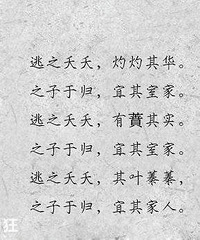 逃之夭夭，灼灼其华。
之子于归，宜其室家。
逃之夭夭，有蕡其实。
之子于归，宜其室家。
逃之夭夭，其叶蓁蓁，
之子于归，宜其家人。
狂